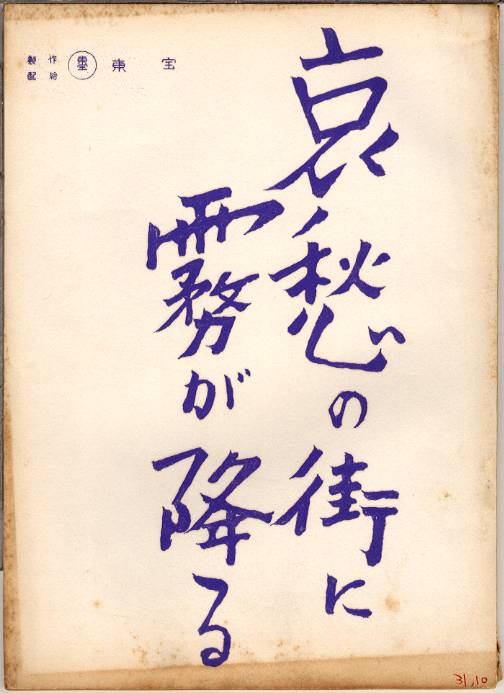 製作
配給
東宝
哀愁の街に
霧が降る
31.10